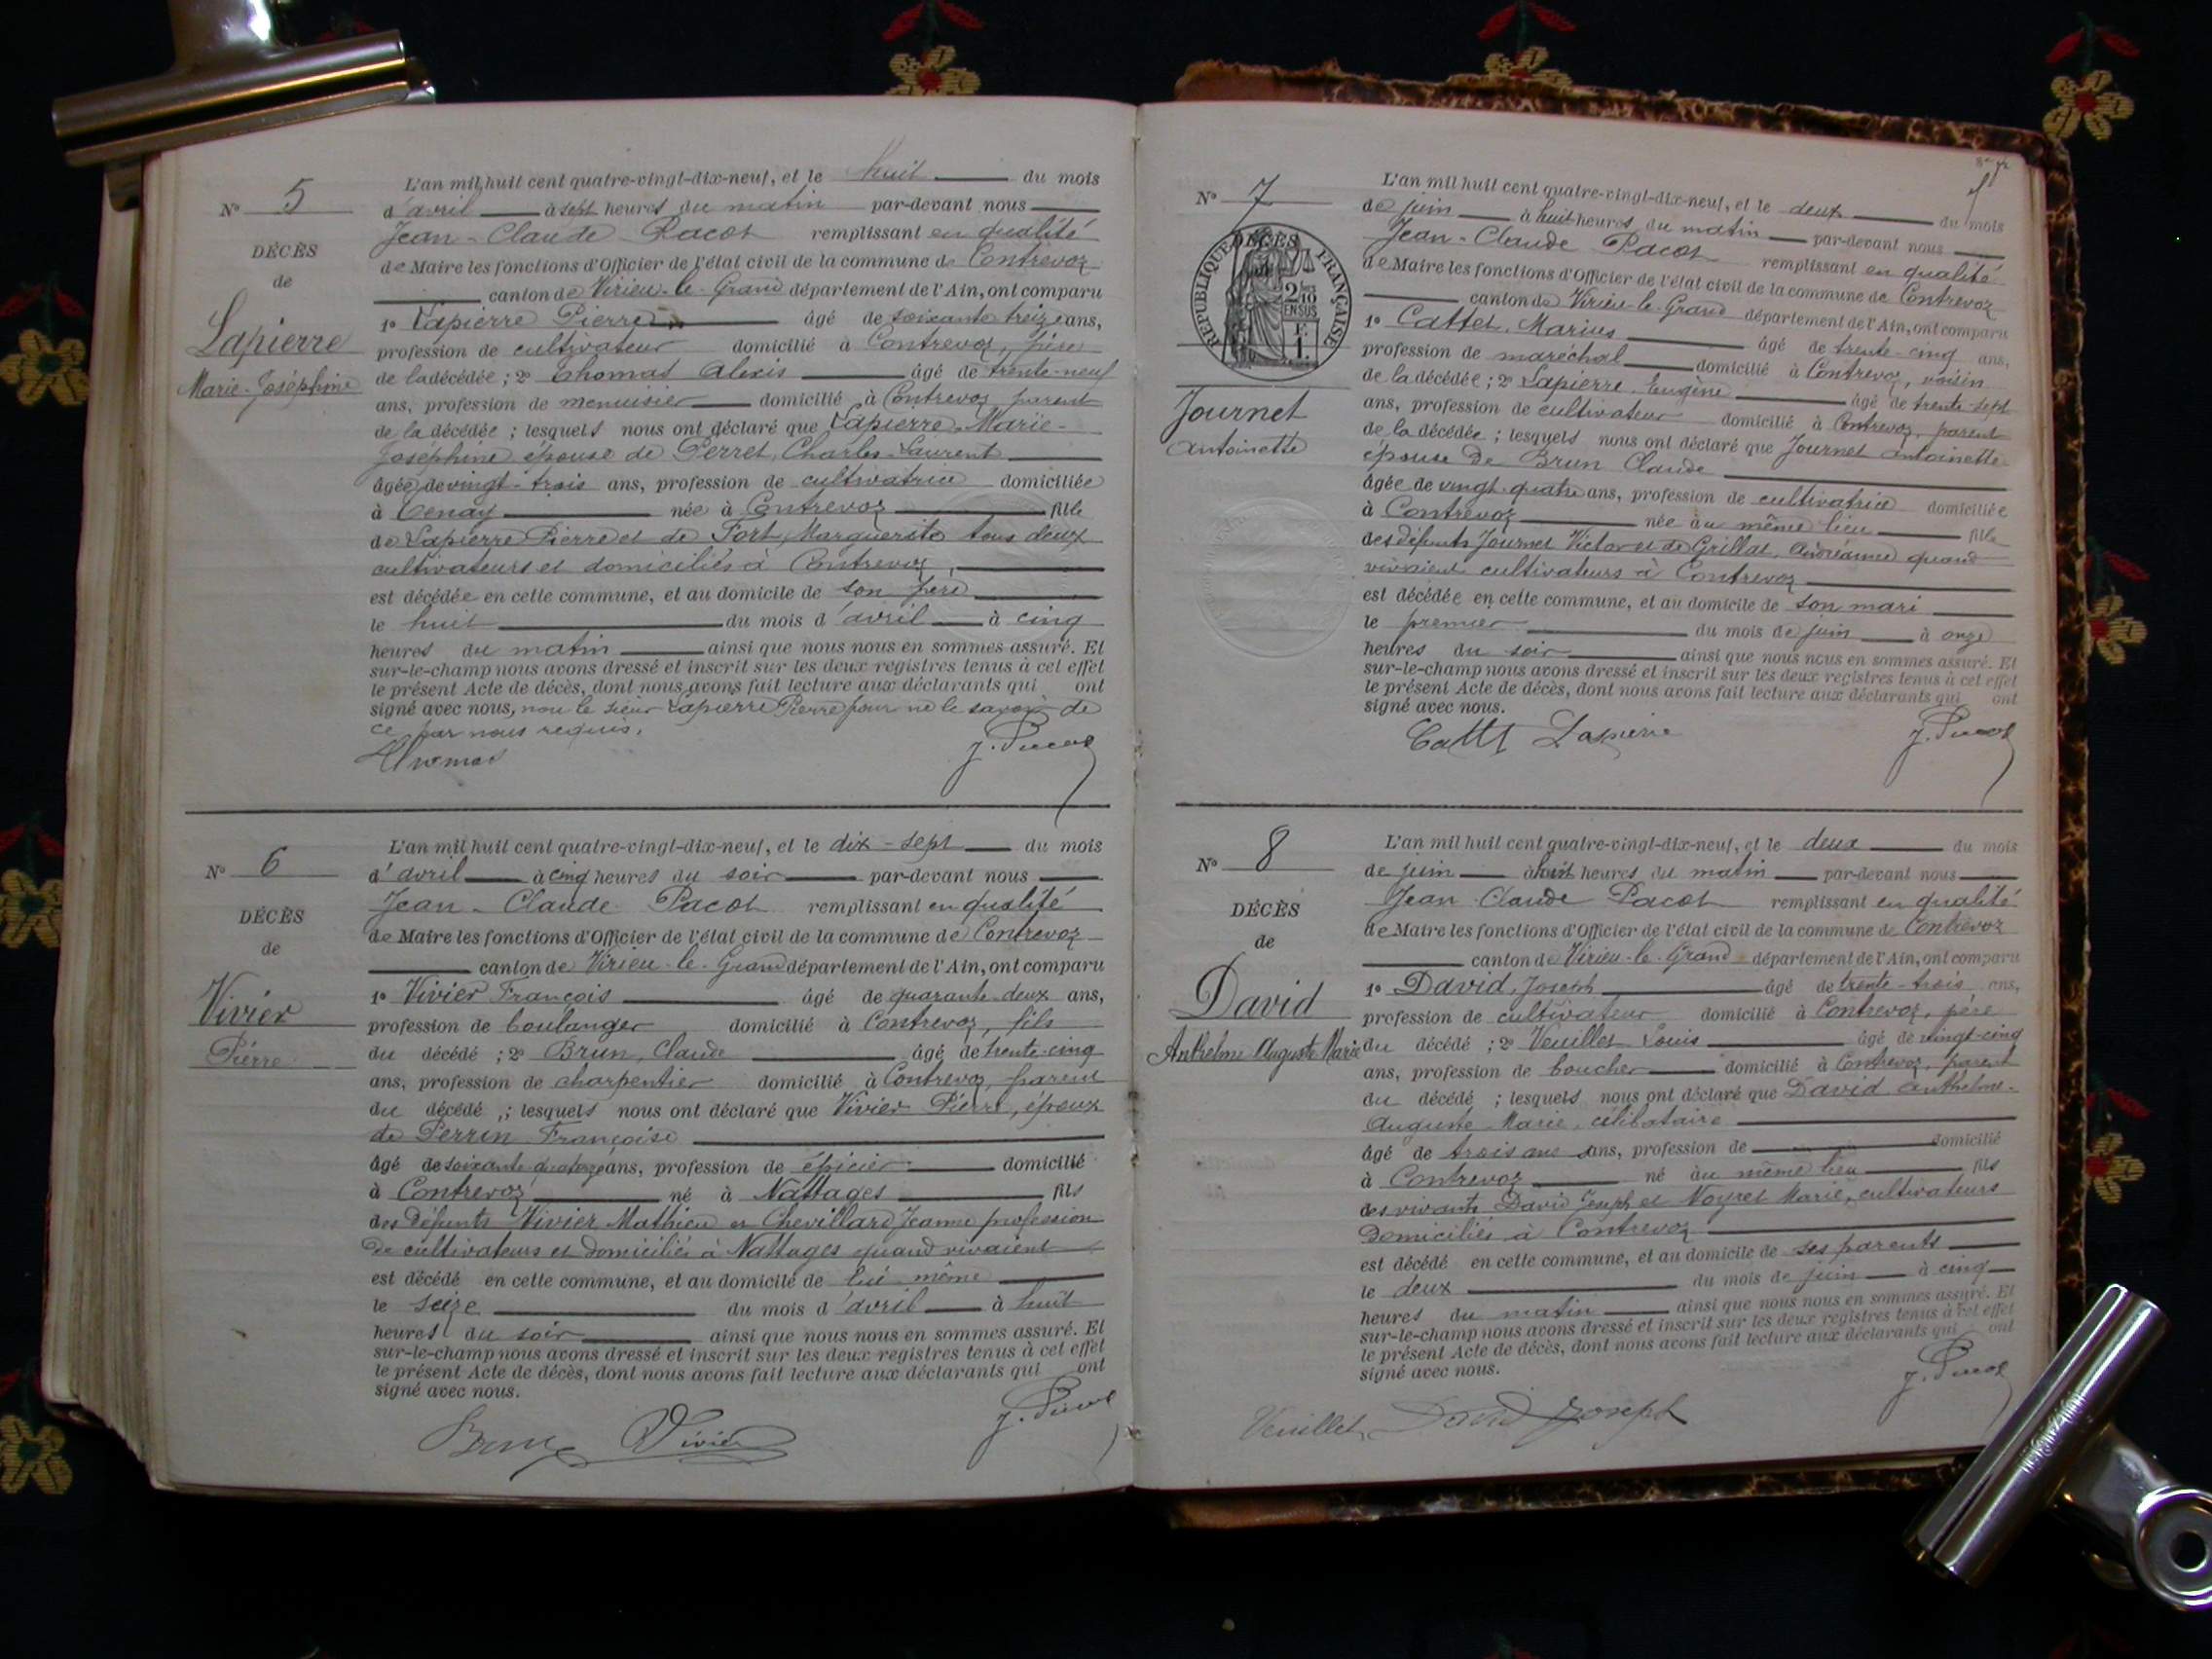 Nº 5
DÉCÈS
de
Lapierre
Marie-Joséphine
L'an mil huit cent quatre-vingt-dix-neuf, et le huit du mois
d'avril à sept heures du matin par-devant nous
Jean-Claude Pacot remplissant en qualité
de Maire les fonctions d'Officier de l'état civil de la commune de Contrevoz
canton de Virieu-le-Grand département de l'Ain, ont comparu
1º Lapierre Pierre âgé de soixante treize ans,
profession de cultivateur domicilié à Contrevoz, père
de la décédée ; 2º Thomas Alexis âgé de trente-neuf
ans, profession de menuisier domicilié à Contrevoz parent
de la décédée ; lesquels nous ont déclaré que Lapierre Marie-
Joséphine épouse de Perret, Charles-Laurent
âgée de vingt-trois ans, profession de cultivatrice domiciliée
à Tenay née à Contrevoz fille
de Lapierre Pierre et de Fort, Marguerite tous deux
cultivateurs et domiciliés à Contrevoz,
est décédée en cette commune, et au domicile de son père
le huit du mois d'avril à cinq
heures du matin ainsi que nous nous en sommes assuré. Et
sur-le-champ nous avons dressé et inscrit sur les deux registres tenus à cet effet
le présent Acte de décès, dont nous avons fait lecture aux déclarants qui ont
signé avec nous, non le sieur Lapierre Pierre pour ne le savoir de
ce par nous requis.
Thomas J. Pacot
Nº 6
DÉCÈS
de
Vivier
Pierre
L'an mil huit cent quatre-vingt-dix-neuf, et le dix-sept du mois
d'avril à cinq heures du soir par-devant nous
Jean-Claude Pacot remplissant en qualité
de Maire les fonctions d'Officier de l'état civil de la commune de Contrevoz
canton de Virieu-le-Grand département de l'Ain, ont comparu
1º Vivier François âgé de quarante-deux ans,
profession de boulanger domicilié à Contrevoz, fils
du décédé ; 2º Brun, Claude âgé de trente-cinq
ans, profession de charpentier domicilié à Contrevoz, parent
du décédé ; lesquels nous ont déclaré que Vivier Pierre, époux
de Perrin Françoise
âgé de soixante quatorze ans, profession de épicier domicilié
à Contrevoz né à Nattages fils
des défunts Vivier Mathieu et Chevillard Jeanne profession
de cultivateurs et domiciliés à Nattages quand vivaient
est décédé en cette commune, et au domicile de lui même
le seize du mois d'avril à huit
heures du soir ainsi que nous nous en sommes assuré. Et
sur-le-champ nous avons dressé et inscrit sur les deux registres tenus à cet effet
le présent Acte de décès, dont nous avons fait lecture aux déclarants qui ont
signé avec nous.
Brun Vivier J. Pacot
Nº 7
DÉCÈS
RÉPUBLIQUE FRANÇAISE
2/10 EN SUS
1 F.
Journet
Antoinette
L'an mil huit cent quatre-vingt-dix-neuf, et le deux du mois
de juin à huit heures du matin par-devant nous
Jean-Claude Pacot remplissant en qualité
de Maire les fonctions d'Officier de l'état civil de la commune de Contrevoz
canton de Virieu-le-Grand département de l'Ain, ont comparu
1º Cattet, Marius âgé de trente-cinq ans,
profession de maréchal domicilié à Contrevoz, voisin
de la décédée ; 2º Lapierre, Eugène âgé de trente-sept
ans, profession de cultivateur domicilié à Contrevoz, parent
de la décédée ; lesquels nous ont déclaré que Journet Antoinette
épouse de Brun Claude
âgée de vingt-quatre ans, profession de cultivatrice domiciliée
à Contrevoz née au même lieu fille
des défunts Journet Victor et de Grillat, quand
vivaient cultivateurs à Contrevoz
est décédée en cette commune, et au domicile de son mari
le premier du mois de juin à onze
heures du soir ainsi que nous nous en sommes assuré. Et
sur-le-champ nous avons dressé et inscrit sur les deux registres tenus à cet effet
le présent Acte de décès, dont nous avons fait lecture aux déclarants qui ont
signé avec nous.
Cattet Lapierre J. Pacot
Nº 8
DÉCÈS
de
David
Anthelme Auguste Marie
L'an mil huit cent quatre-vingt-dix-neuf, et le deux du mois
de juin à huit heures du matin par-devant nous
Jean-Claude Pacot remplissant en qualité
de Maire les fonctions d'Officier de l'état civil de la commune de Contrevoz
canton de Virieu-le-Grand département de l'Ain, ont comparu
1º David, Joseph âgé de trente-trois ans,
profession de cultivateur domicilié à Contrevoz, père
du décédé ; 2º Veuillet Louis âgé de vingt-cinq
ans, profession de boucher domicilié à Contrevoz, parent
du décédé ; lesquels nous ont déclaré que David Anthelme-
Auguste-Marie, célibataire
âgé de trois ans ans, profession de domicilié
à Contrevoz né au même lieu fils
des vivants David Joseph et Moyret Marie, cultivateurs
domiciliés à Contrevoz
est décédé en cette commune, et au domicile de ses parents
le deux du mois de juin à cinq
heures du matin ainsi que nous nous en sommes assuré. Et
sur-le-champ nous avons dressé et inscrit sur les deux registres tenus à cet effet
le présent Acte de décès, dont nous avons fait lecture aux déclarants qui ont
signé avec nous.
Veuillet David Joseph J. Pacot